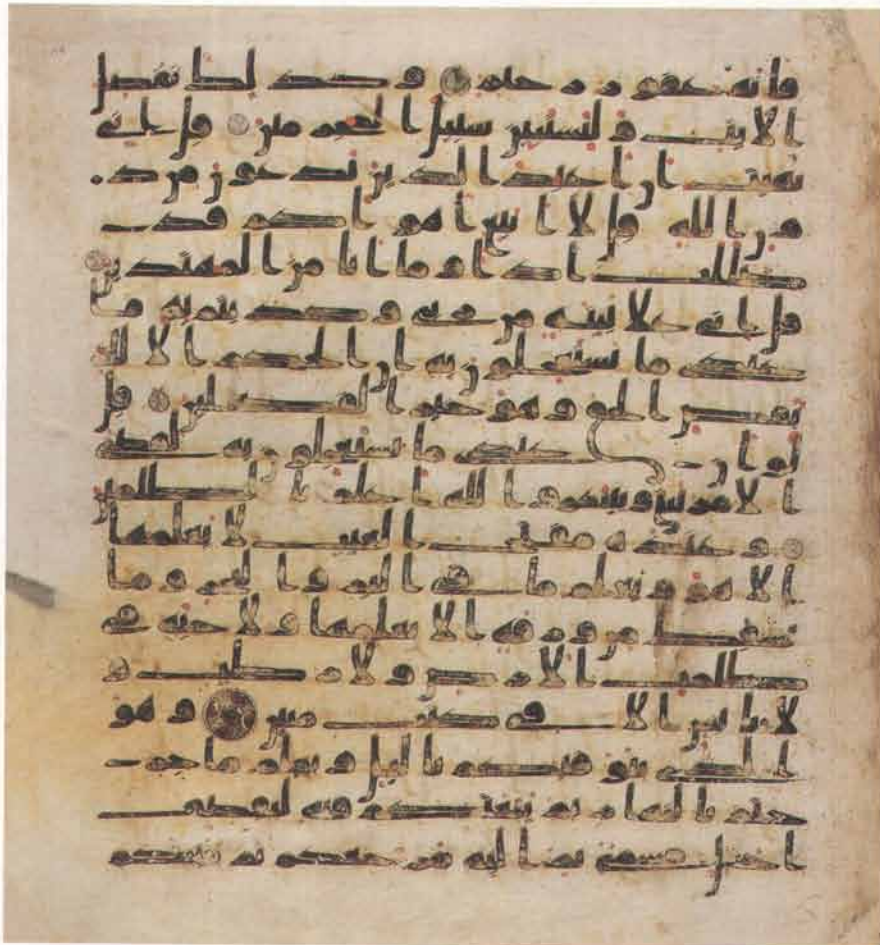 فانه غفور رحيم وكذلك نفصل
الايت ولتستبين سبيل المجرمين قل اني
نهيت ان اعبد الذين تدعون من د
ون الله قل لا اتبع اهواكم قد
ضللت اذا وما انا من المهتدين
قل اني على بينة من ربي وكذبتم به ما
عندي ما تستعجلون به ان الحكم الا لله
يقص الحق وهو خير الفصلين قل
لو ان عندي ما تستعجلون به لقضي
الامر بيني وبينكم والله اعلم بالظلمين
وعنده مفتح الغيب لا يعلمها
الا هو ويعلم ما في البر والبحر وما
تسقط من ورقة الا يعلمها ولا حبة في
ظلمت الارض ولا رطب و
لا يابس الا في كتب مبين وهو
الذي يتوفيكم باليل ويعلم ما جر
حتم بالنهار ثم يبعثكم فيه ليقضى
اجل مسمى ثم اليه مرجعكم ثم ينبئكم